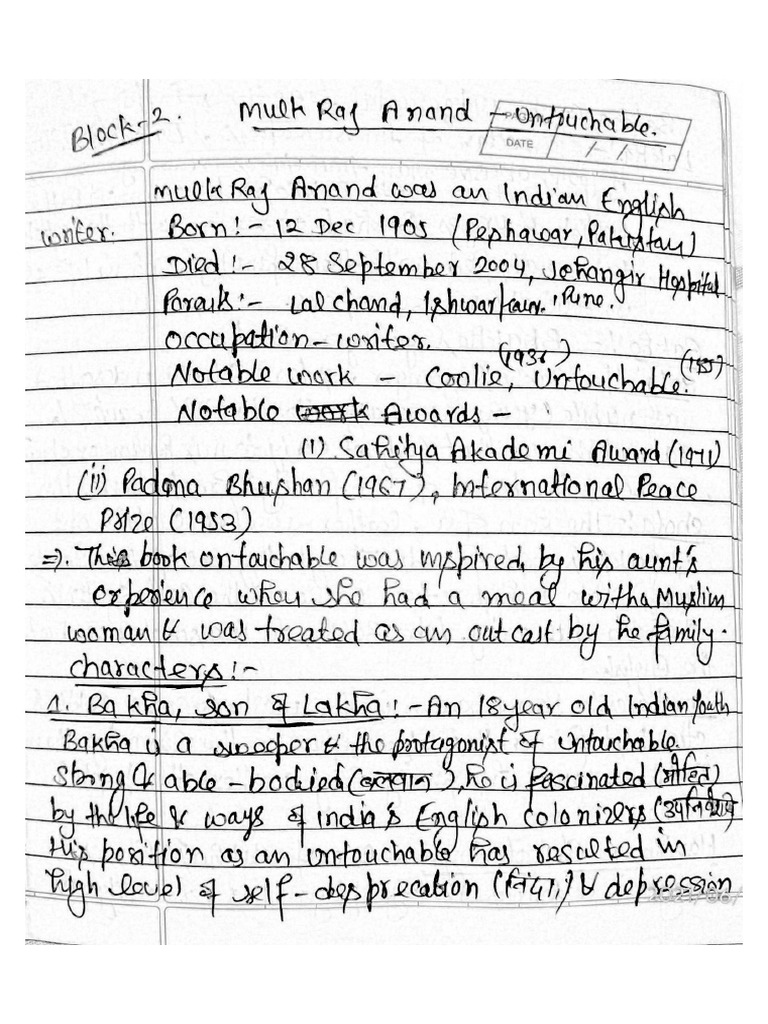 Block-2. Mulk Raj Anand - Untouchable.
DATE
Mulk Raj Anand was an Indian English
writer. Born:- 12 Dec 1905 (Peshawar, Pakistan)
Died:- 28 September 2004, Jehangir Hospital
, Pune.
Lal Chand, Ishwar Kaur.
Occupation - writer.
Notable work - Coolie, (1936) Untouchable. (1935)
Notable work Awards -
(i) Sahitya Akademi Award (1971)
(ii) Padma Bhushan (1967), International Peace
Prize (1953)
⇒. This book ontouchable was inspired, by his aunt's
experience when she had a meal with a Muslim
woman & was treated as an outcast by he family.
characters:-
1. Bakha, son of Lakha:- An 18 year old Indian youth
Bakha is a sweeper & the protagonist of Untouchable.
Strong & able-bodied (बलवान), He is fascinated (मोहित)
by the life & ways of India's English colonizers
His position as an untouchable has resulted in
high level of self-desprecation (निंदा) & depression